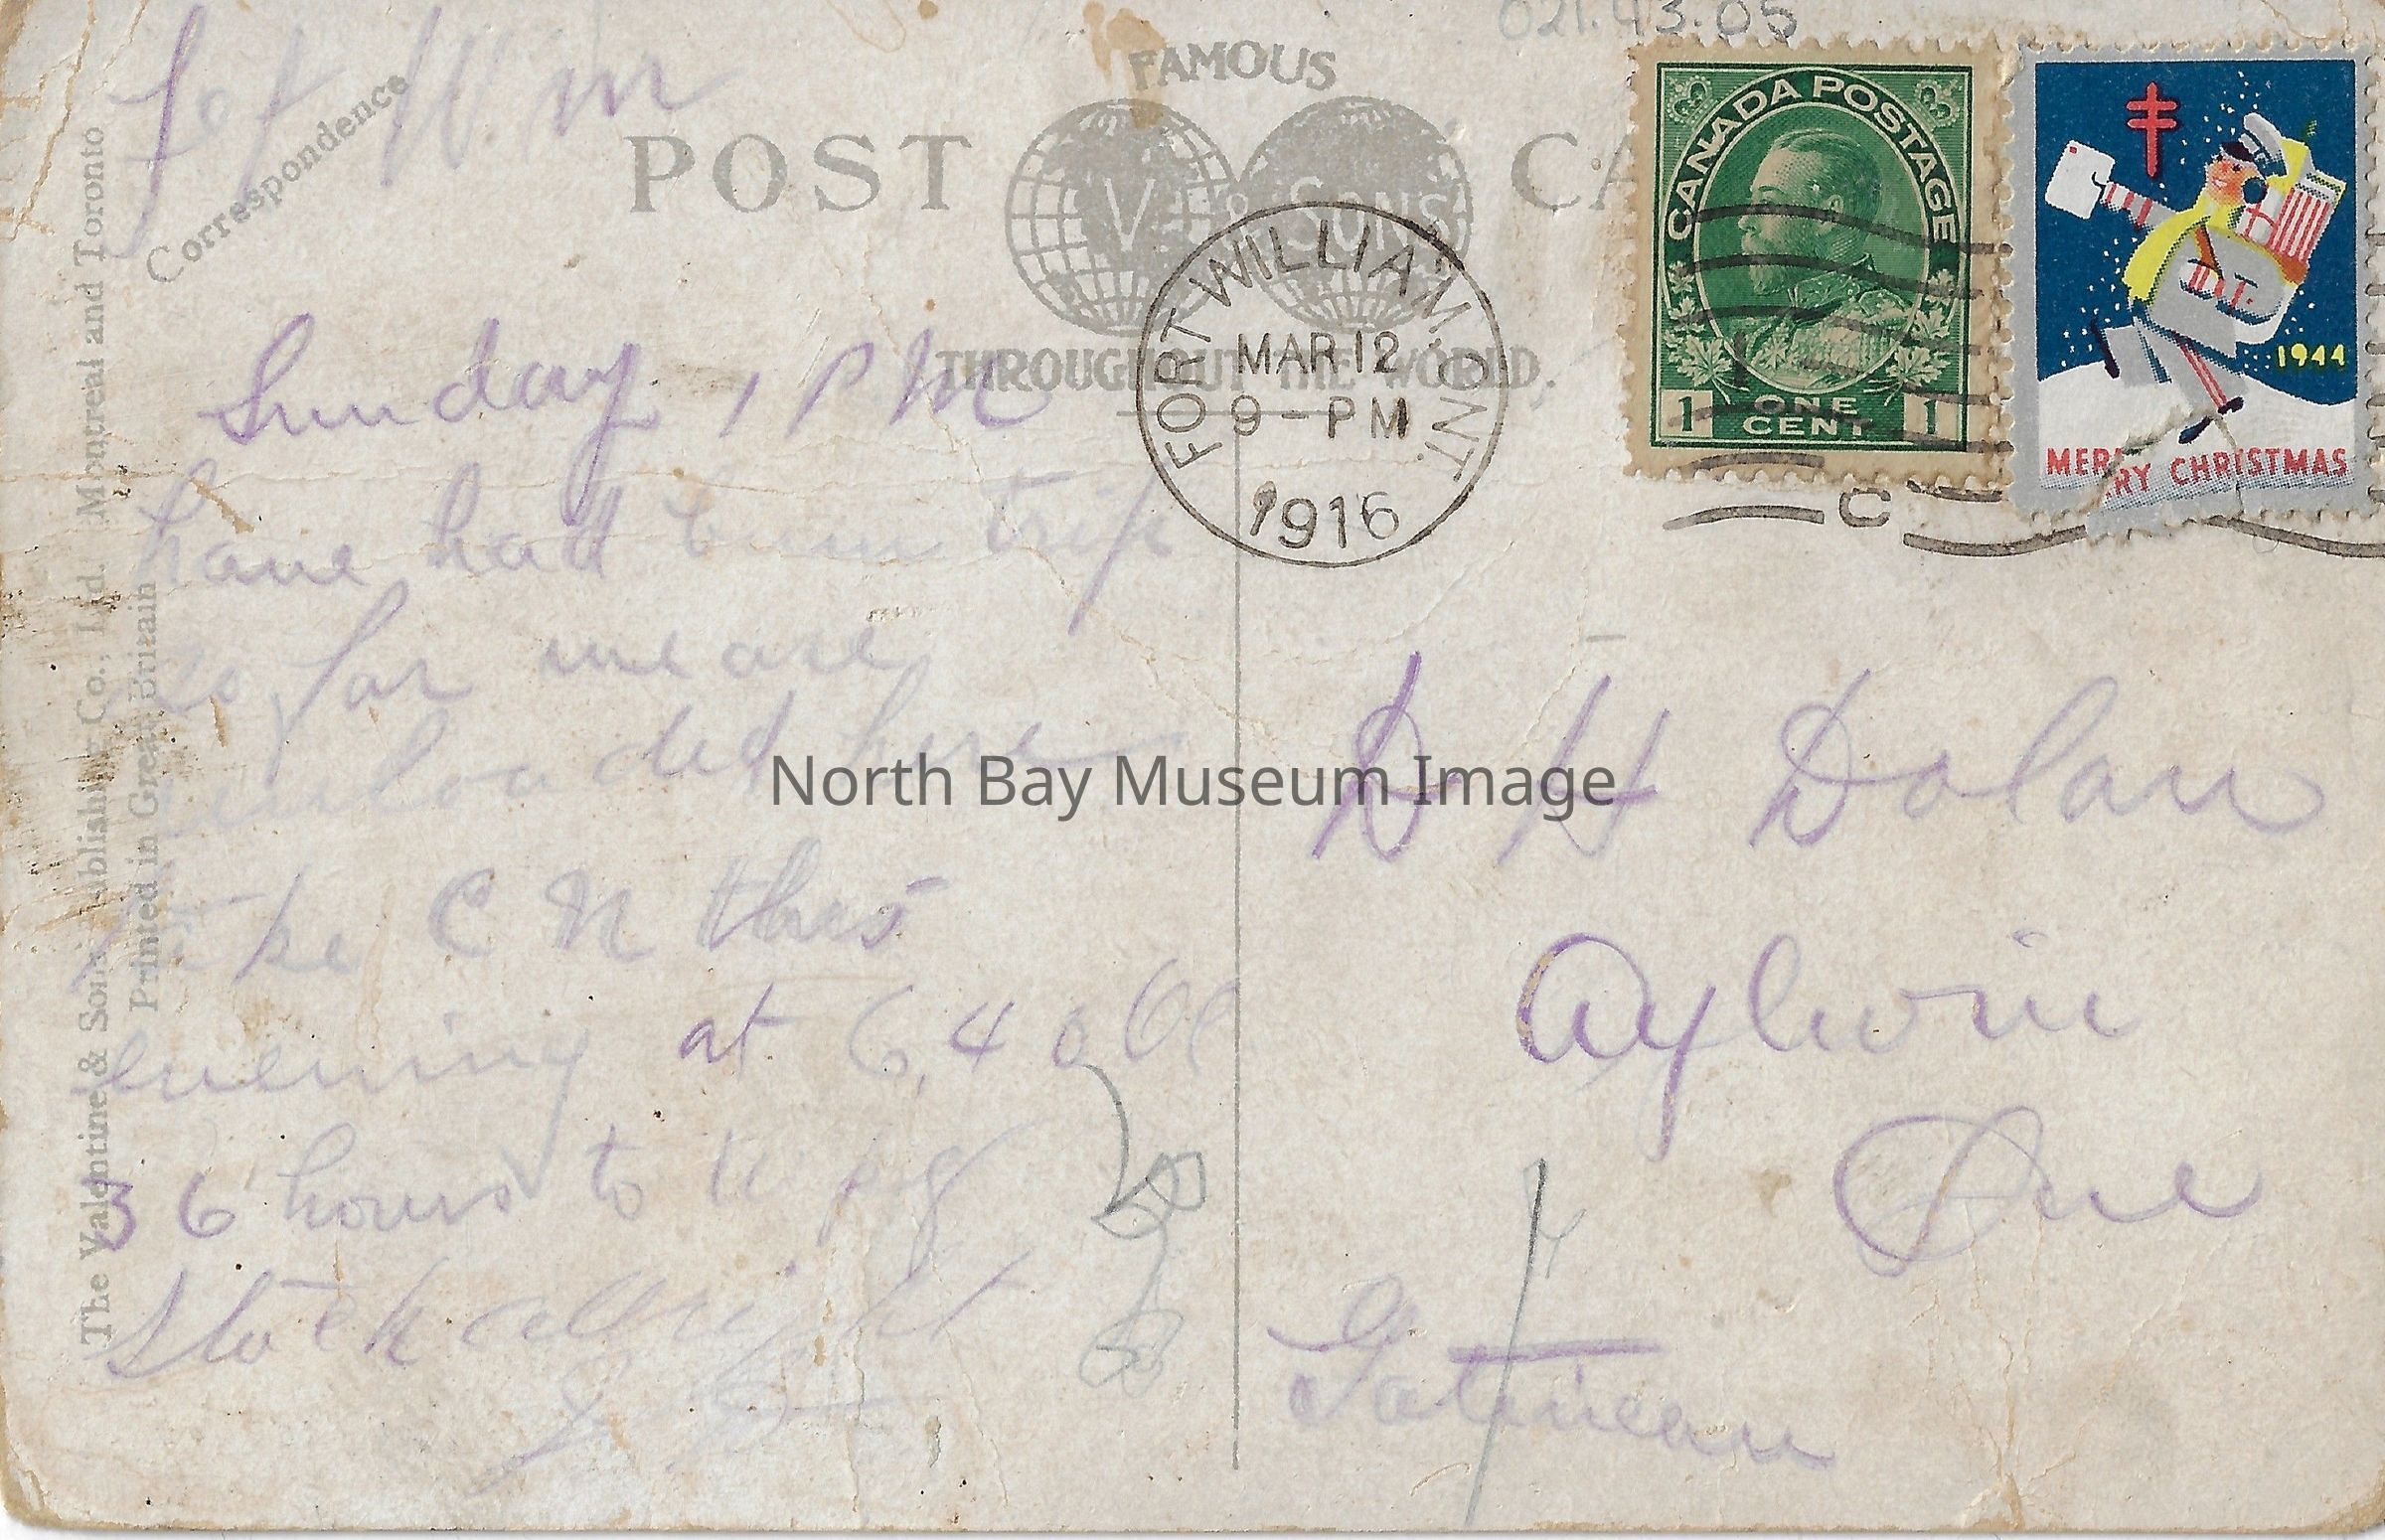 021.43.05
Ft Wm
Correspondence
FAMOUS
POST CA
V & SONS
THROUGHOUT THE WORLD.
FORT WILLIAM ONT.
MAR 12
9 - PM
1916
CANADA POSTAGE
1 ONE CENT 1
1944
MERRY CHRISTMAS
RY
C
Sunday 1 PM
have had bum trip
so far we are
unloaded here
take C N this
evening at 6,40
36 hours to Wpg
Stock allright
D H Dolan
Aylwin
Que
Gatineau
The Valentine & Sons Publishing Co., Ltd. Montreal and Toronto
Printed in Great Britain
North Bay Museum Image